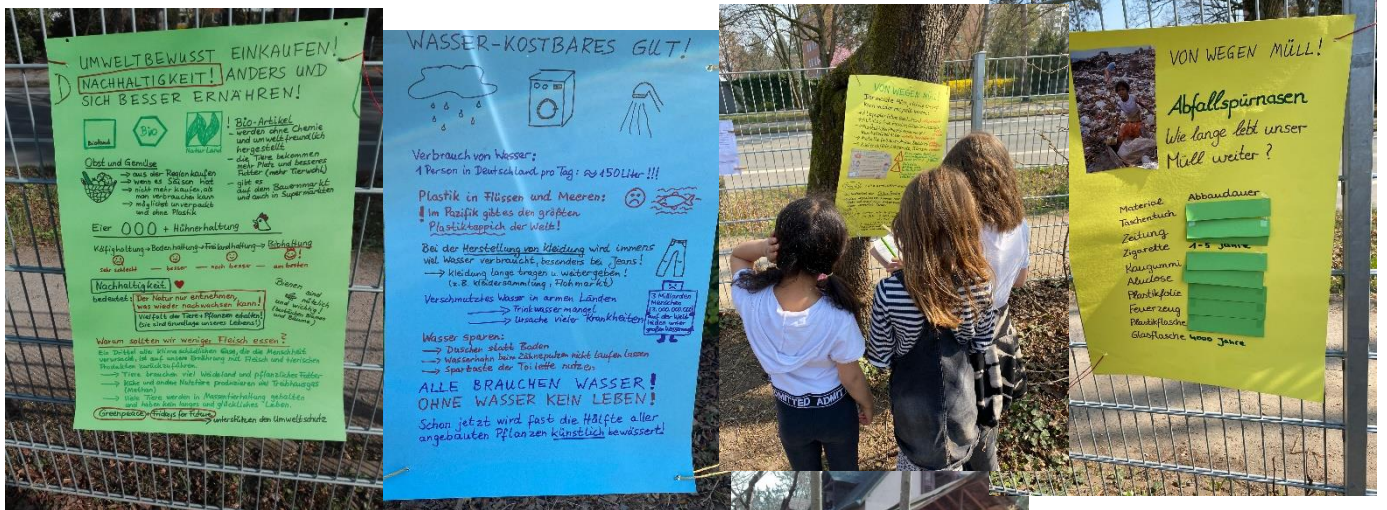 UMWELTBEWUSST EINKAUFEN!
NACHHALTIGKEIT! ANDERS UND
SICH BESSER ERNÄHREN!
Bioland
Bio
Naturland
! Bio-Artikel
- werden ohne Chemie
und umweltfreundlich
hergestellt
- die Tiere bekommen
mehr Platz und besseres
Futter (mehr Tierwohl)
- gibt es
auf dem Bauernmarkt
und auch in Supermärkten
Obst und Gemüse
→ aus der Region kaufen
→ wenn es Saison hat
→ nicht mehr kaufen, als
man verbrauchen kann
→ möglichst unverpackt
und ohne Plastik
Eier 000 + Hühnerhaltung
Käfighaltung → Bodenhaltung → Freilandhaltung → Biohaltung!
sehr schlecht — besser — noch besser — am besten
Nachhaltigkeit
bedeutet:
Der Natur nur entnehmen,
was wieder nachwachsen kann!
Vielfalt der Tiere + Pflanzen erhalten!
(sie sind Grundlage unseres Lebens!)
Bienen
sind
nützlich
und wichtig!
(bestäuben Blumen
und Bäume)
Warum sollten wir weniger Fleisch essen?
Ein Drittel aller klimaschädlichen Gase, die die Menschheit
verursacht, ist auf unsere Ernährung mit Fleisch und tierischen
Produkten zurückzuführen.
→ Tiere brauchen viel Weideland und pflanzliches Futter
→ Kühe und andere Nutztiere produzieren viel Treibhausgas
(Methan)
→ Viele Tiere werden in Massentierhaltung gehalten
und haben kein langes und glückliches Leben.
Greenpeace + Fridays for Future
→ unterstützen den Umweltschutz
WASSER-KOSTBARES GUT!
Verbrauch von Wasser:
1 Person in Deutschland pro Tag: 150 Liter!!!
Plastik in Flüssen und Meeren:
! Im Pazifik gibt es den größten
Plastikteppich der Welt!
Bei der Herstellung von Kleidung wird immens
viel Wasser verbraucht, besonders bei Jeans!
→ Kleidung lange tragen u. weitergeben!
(z.B. Kleidersammlung, Flohmarkt)
Verschmutztes Wasser in armen Ländern
→ Trinkwassermangel
→ Ursache vieler Krankheiten
3 Milliarden
Menschen
(3.000.000.000)
auf der Welt
leiden unter
großem Wassermangel
Wasser sparen:
→ Duschen statt Baden
→ Wasserhahn beim Zähneputzen nicht laufen lassen
→ Spartaste der Toilette nutzen
ALLE BRAUCHEN WASSER!
OHNE WASSER KEIN LEBEN!
Schon jetzt wird fast die Hälfte aller
angebauten Pflanzen künstlich bewässert!
VON WEGEN MÜLL!
ADMITTED ADMIT
VON WEGEN MÜLL!
Abfallspürnasen
Wie lange lebt unser
Müll weiter?
Material Abbaudauer
Taschentuch
Zeitung
Zigarette 1-5 Jahre
Kaugummi
Aludose
Plastikfolie
Feuerzeug
Plastikflasche
Glasflasche 4000 Jahre